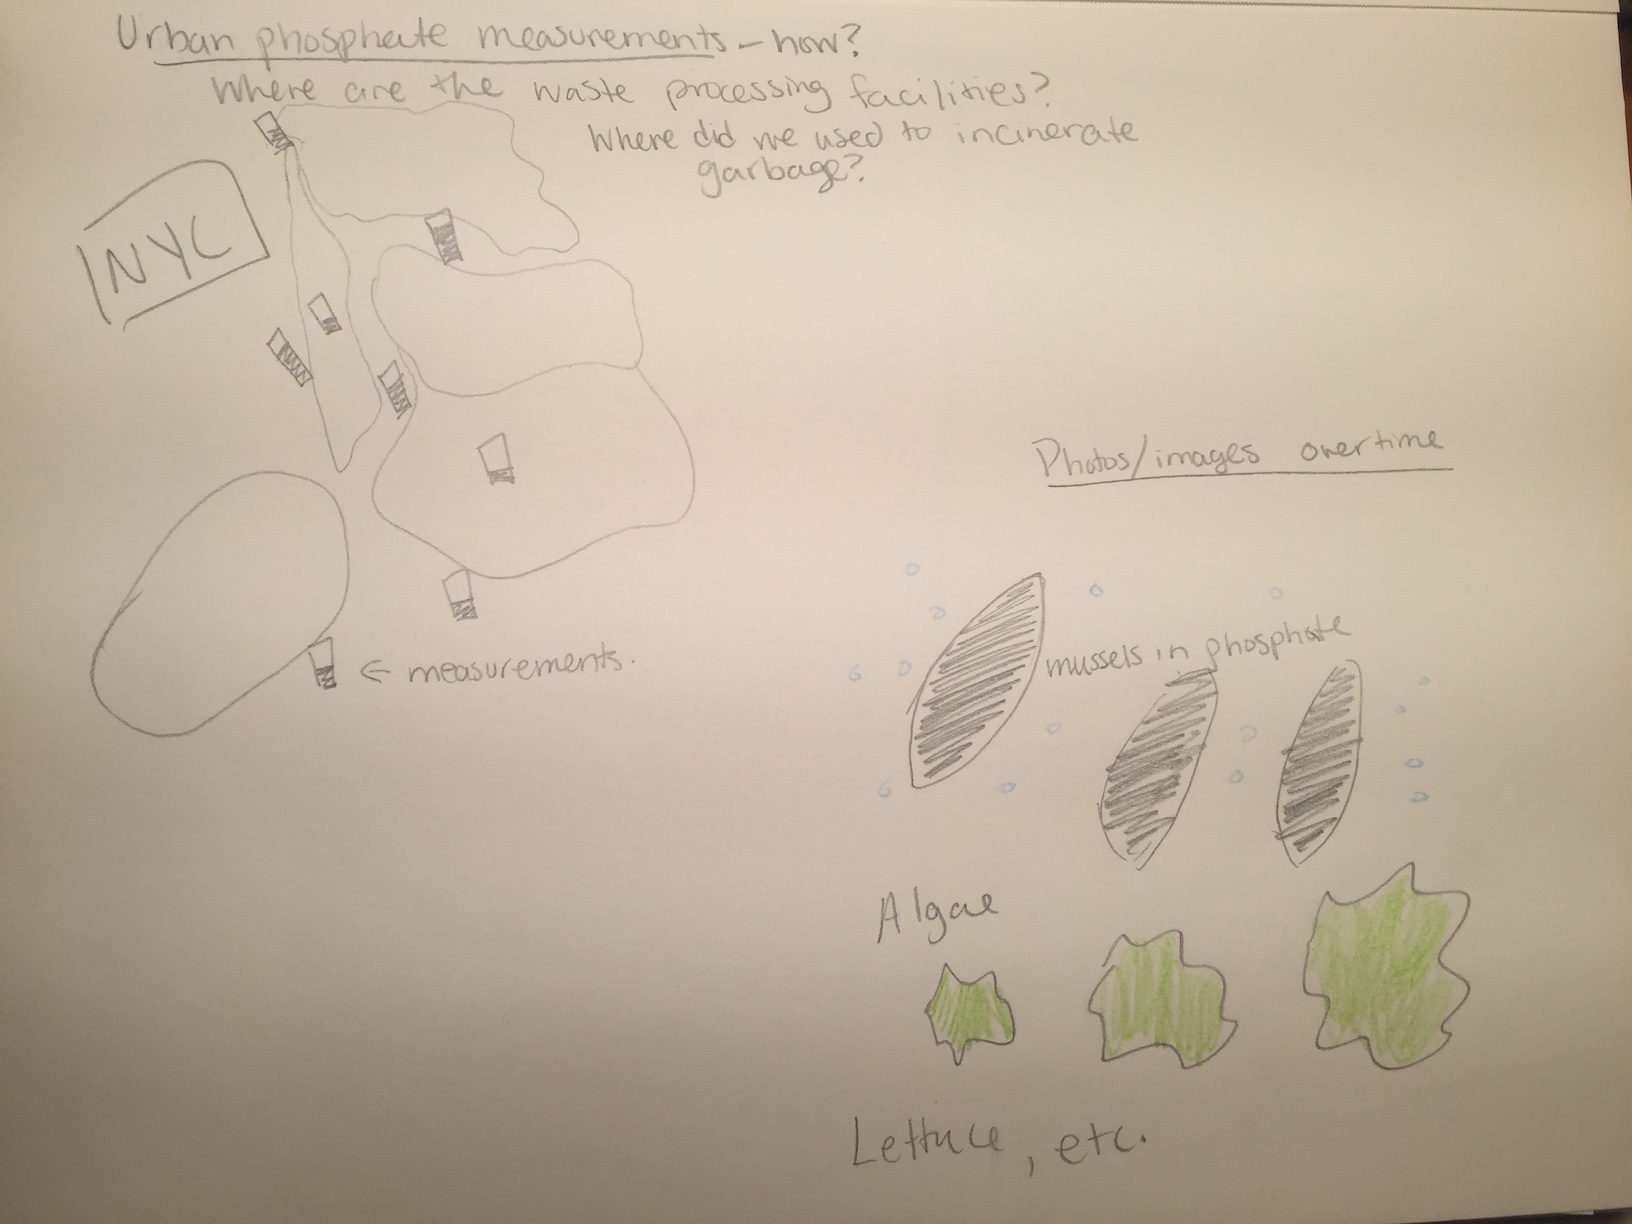 Urban phosphate measurements - how?
Where are the waste processing facilities?
Where did we used to incinerate
garbage?
NYC
← measurements.
Photos/images overtime
mussels in phosphate
Algae
Lettuce, etc.